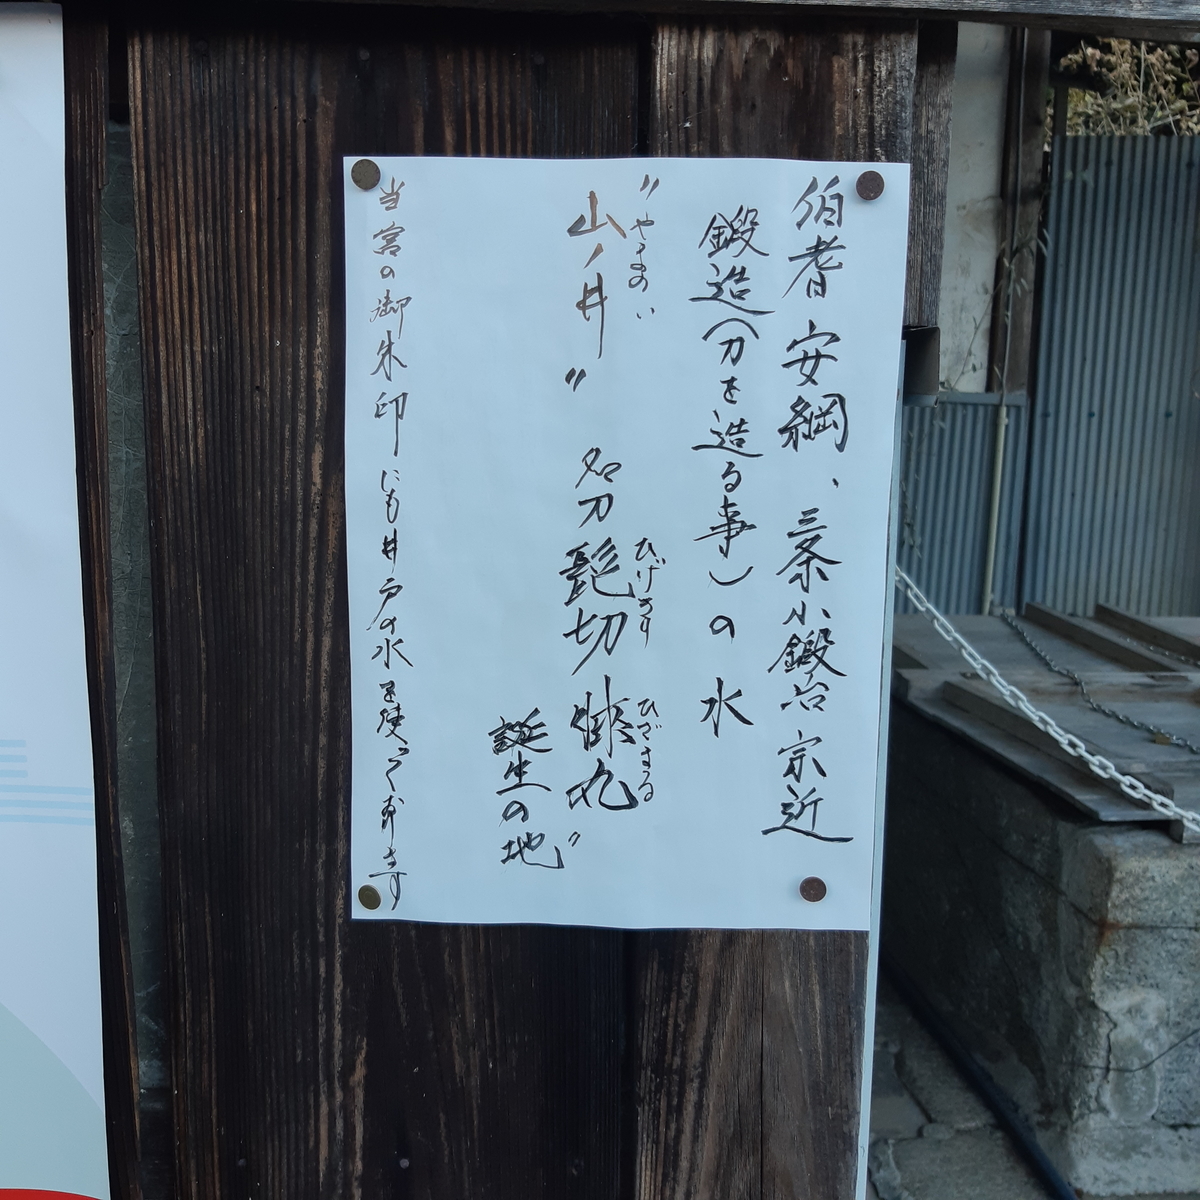 伯耆安綱、三条小鍛冶宗近
鍛造(刀を造る事)の水
"やまのい
山ノ井"名刀髭切膝丸"
ひげきり ひざまる
誕生の地
当宮の御朱印にも井戸の水を使って